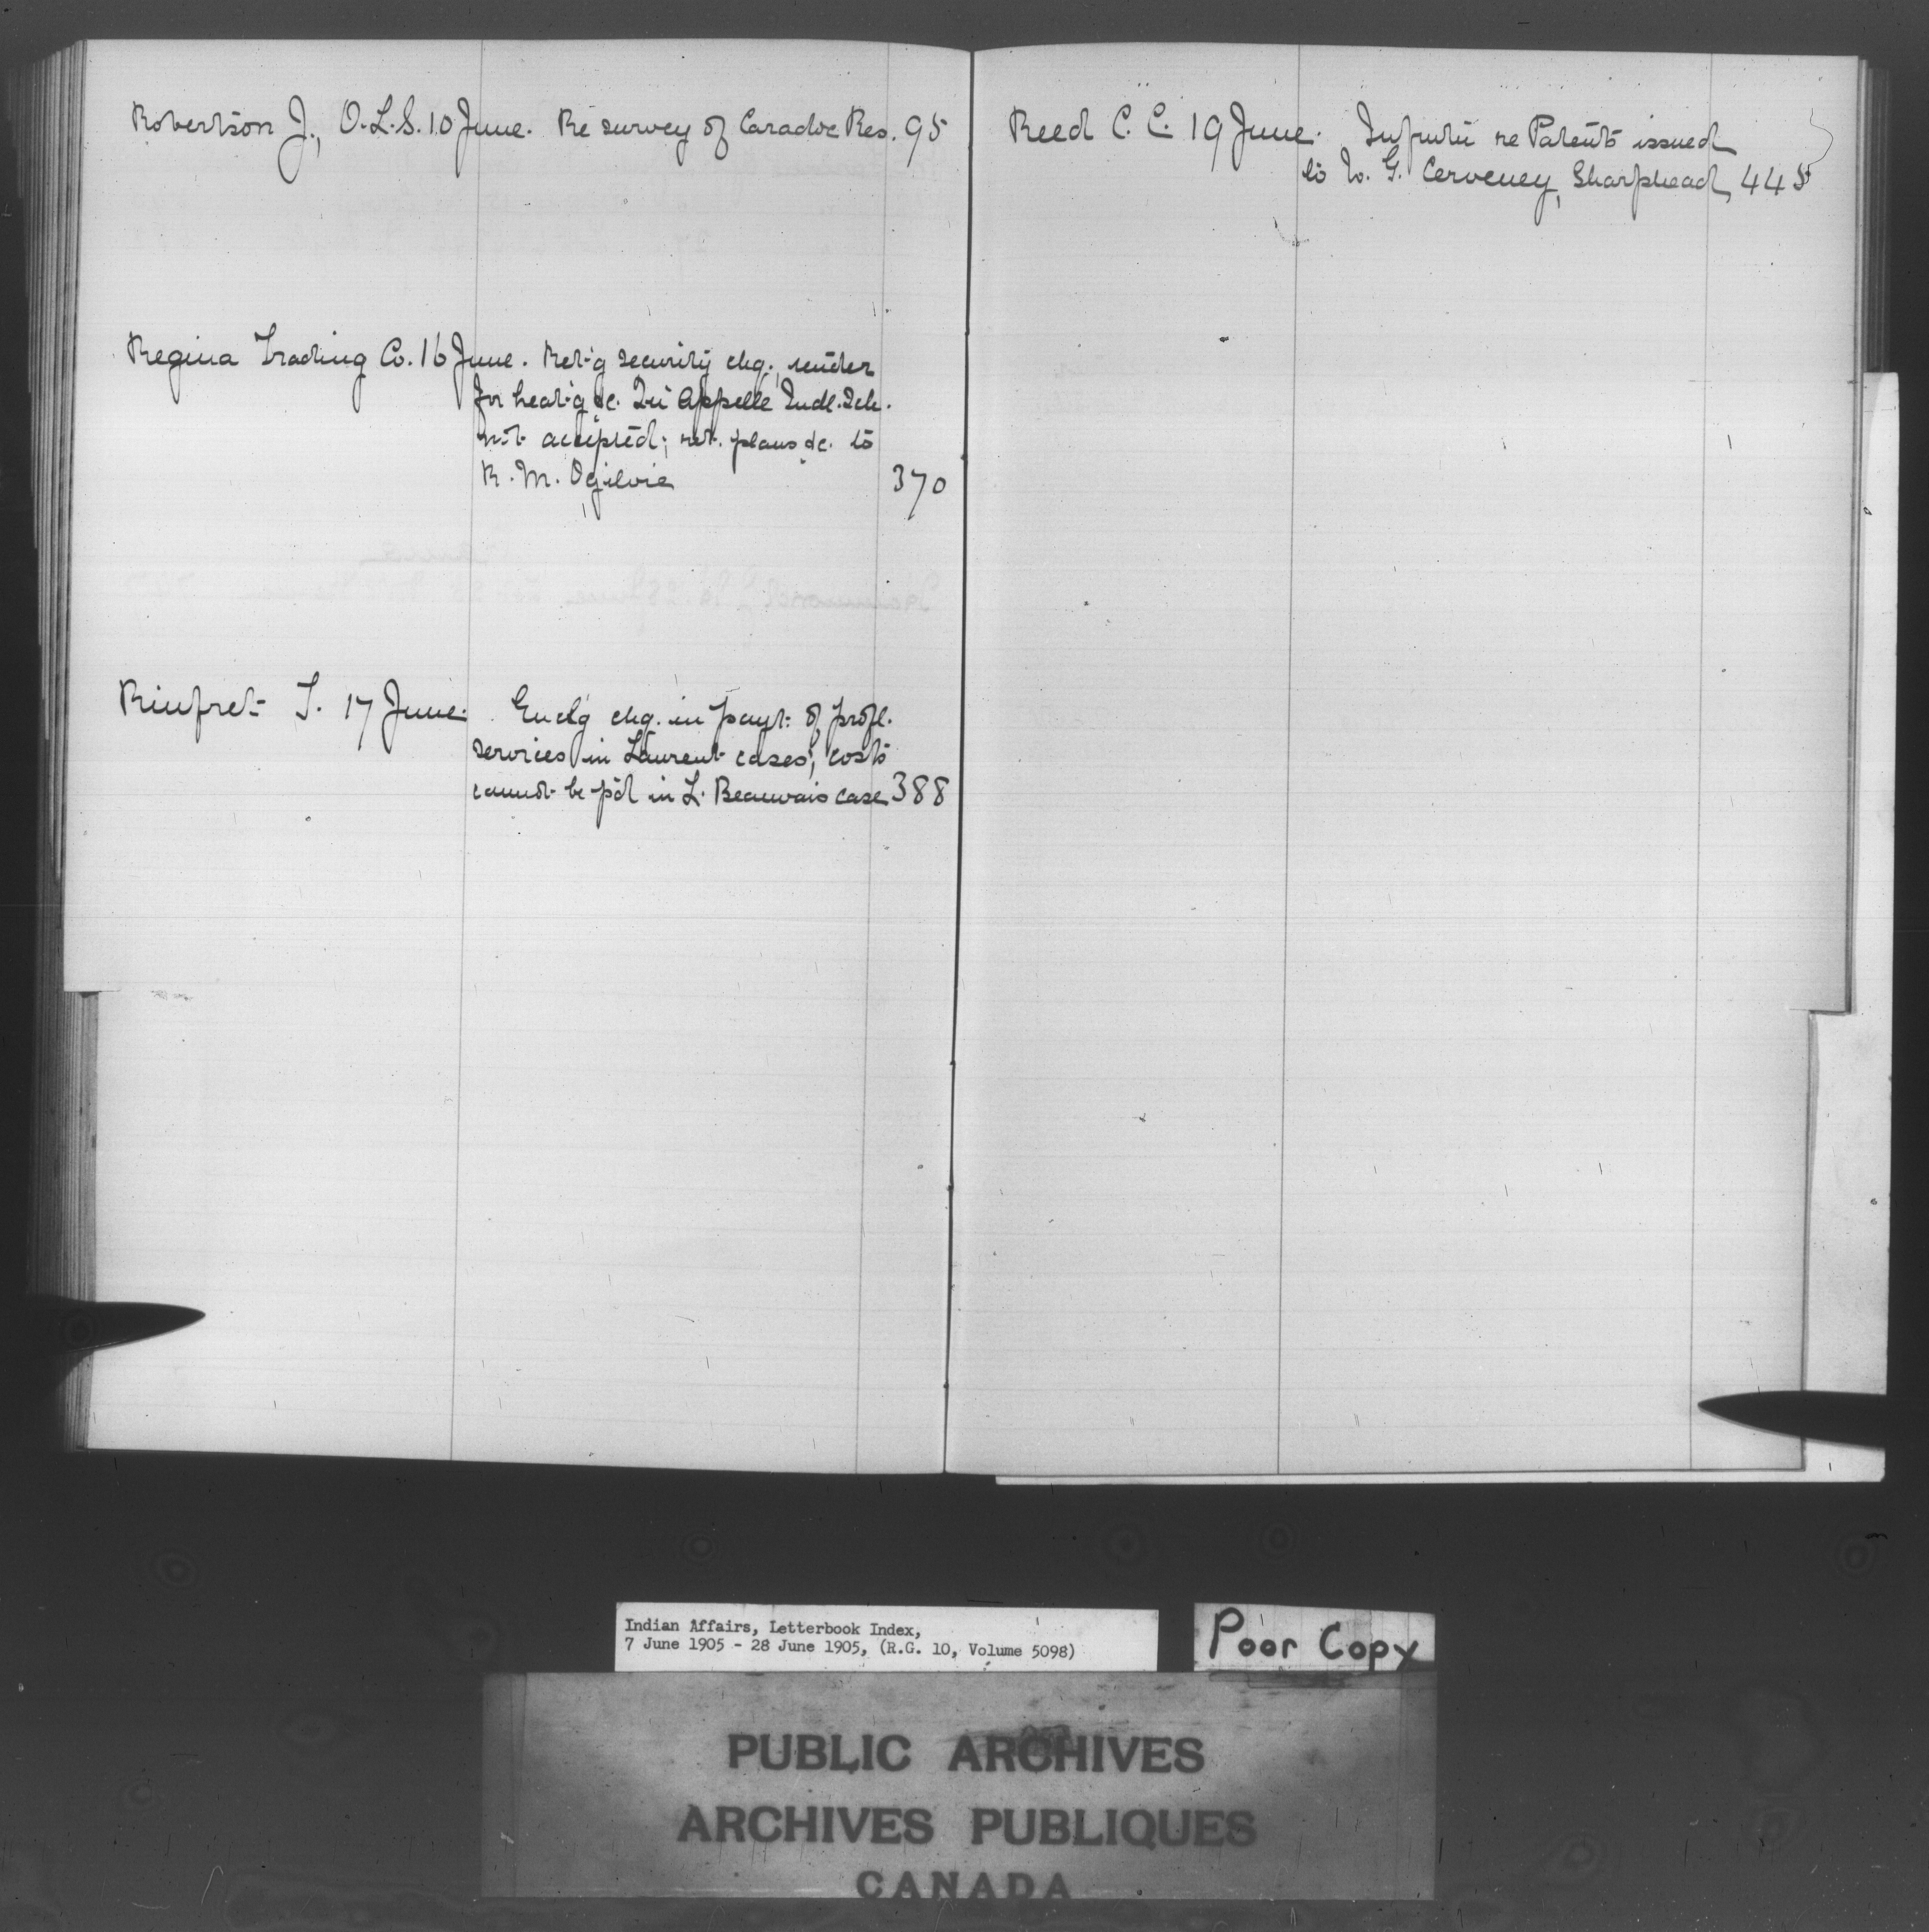 Robertson J., O.L.S. 10 June. Re survey of Caradoc Res. 95
Regina Trading Co. 16 June. Ret'g security chq., tender
for heat'g &c. Qu'Appelle Indl. Sch.
not accepted; ret. plans &c. to
R. M. Ogilvie 370
Rinfret T. 17 June. Enclg chq. in payt. of profl.
services in Laurent cases; costs
cannot be p'd in L. Beauvais case 388
Reed C. C. 19 June. re Patents issued
to W. G. Cerveney, Sharphead, 445
Indian Affairs, Letterbook Index,
7 June 1905 - 28 June 1905, (R.G. 10, Volume 5098)
Poor Copy
PUBLIC ARCHIVES
ARCHIVES PUBLIQUES
CANADA